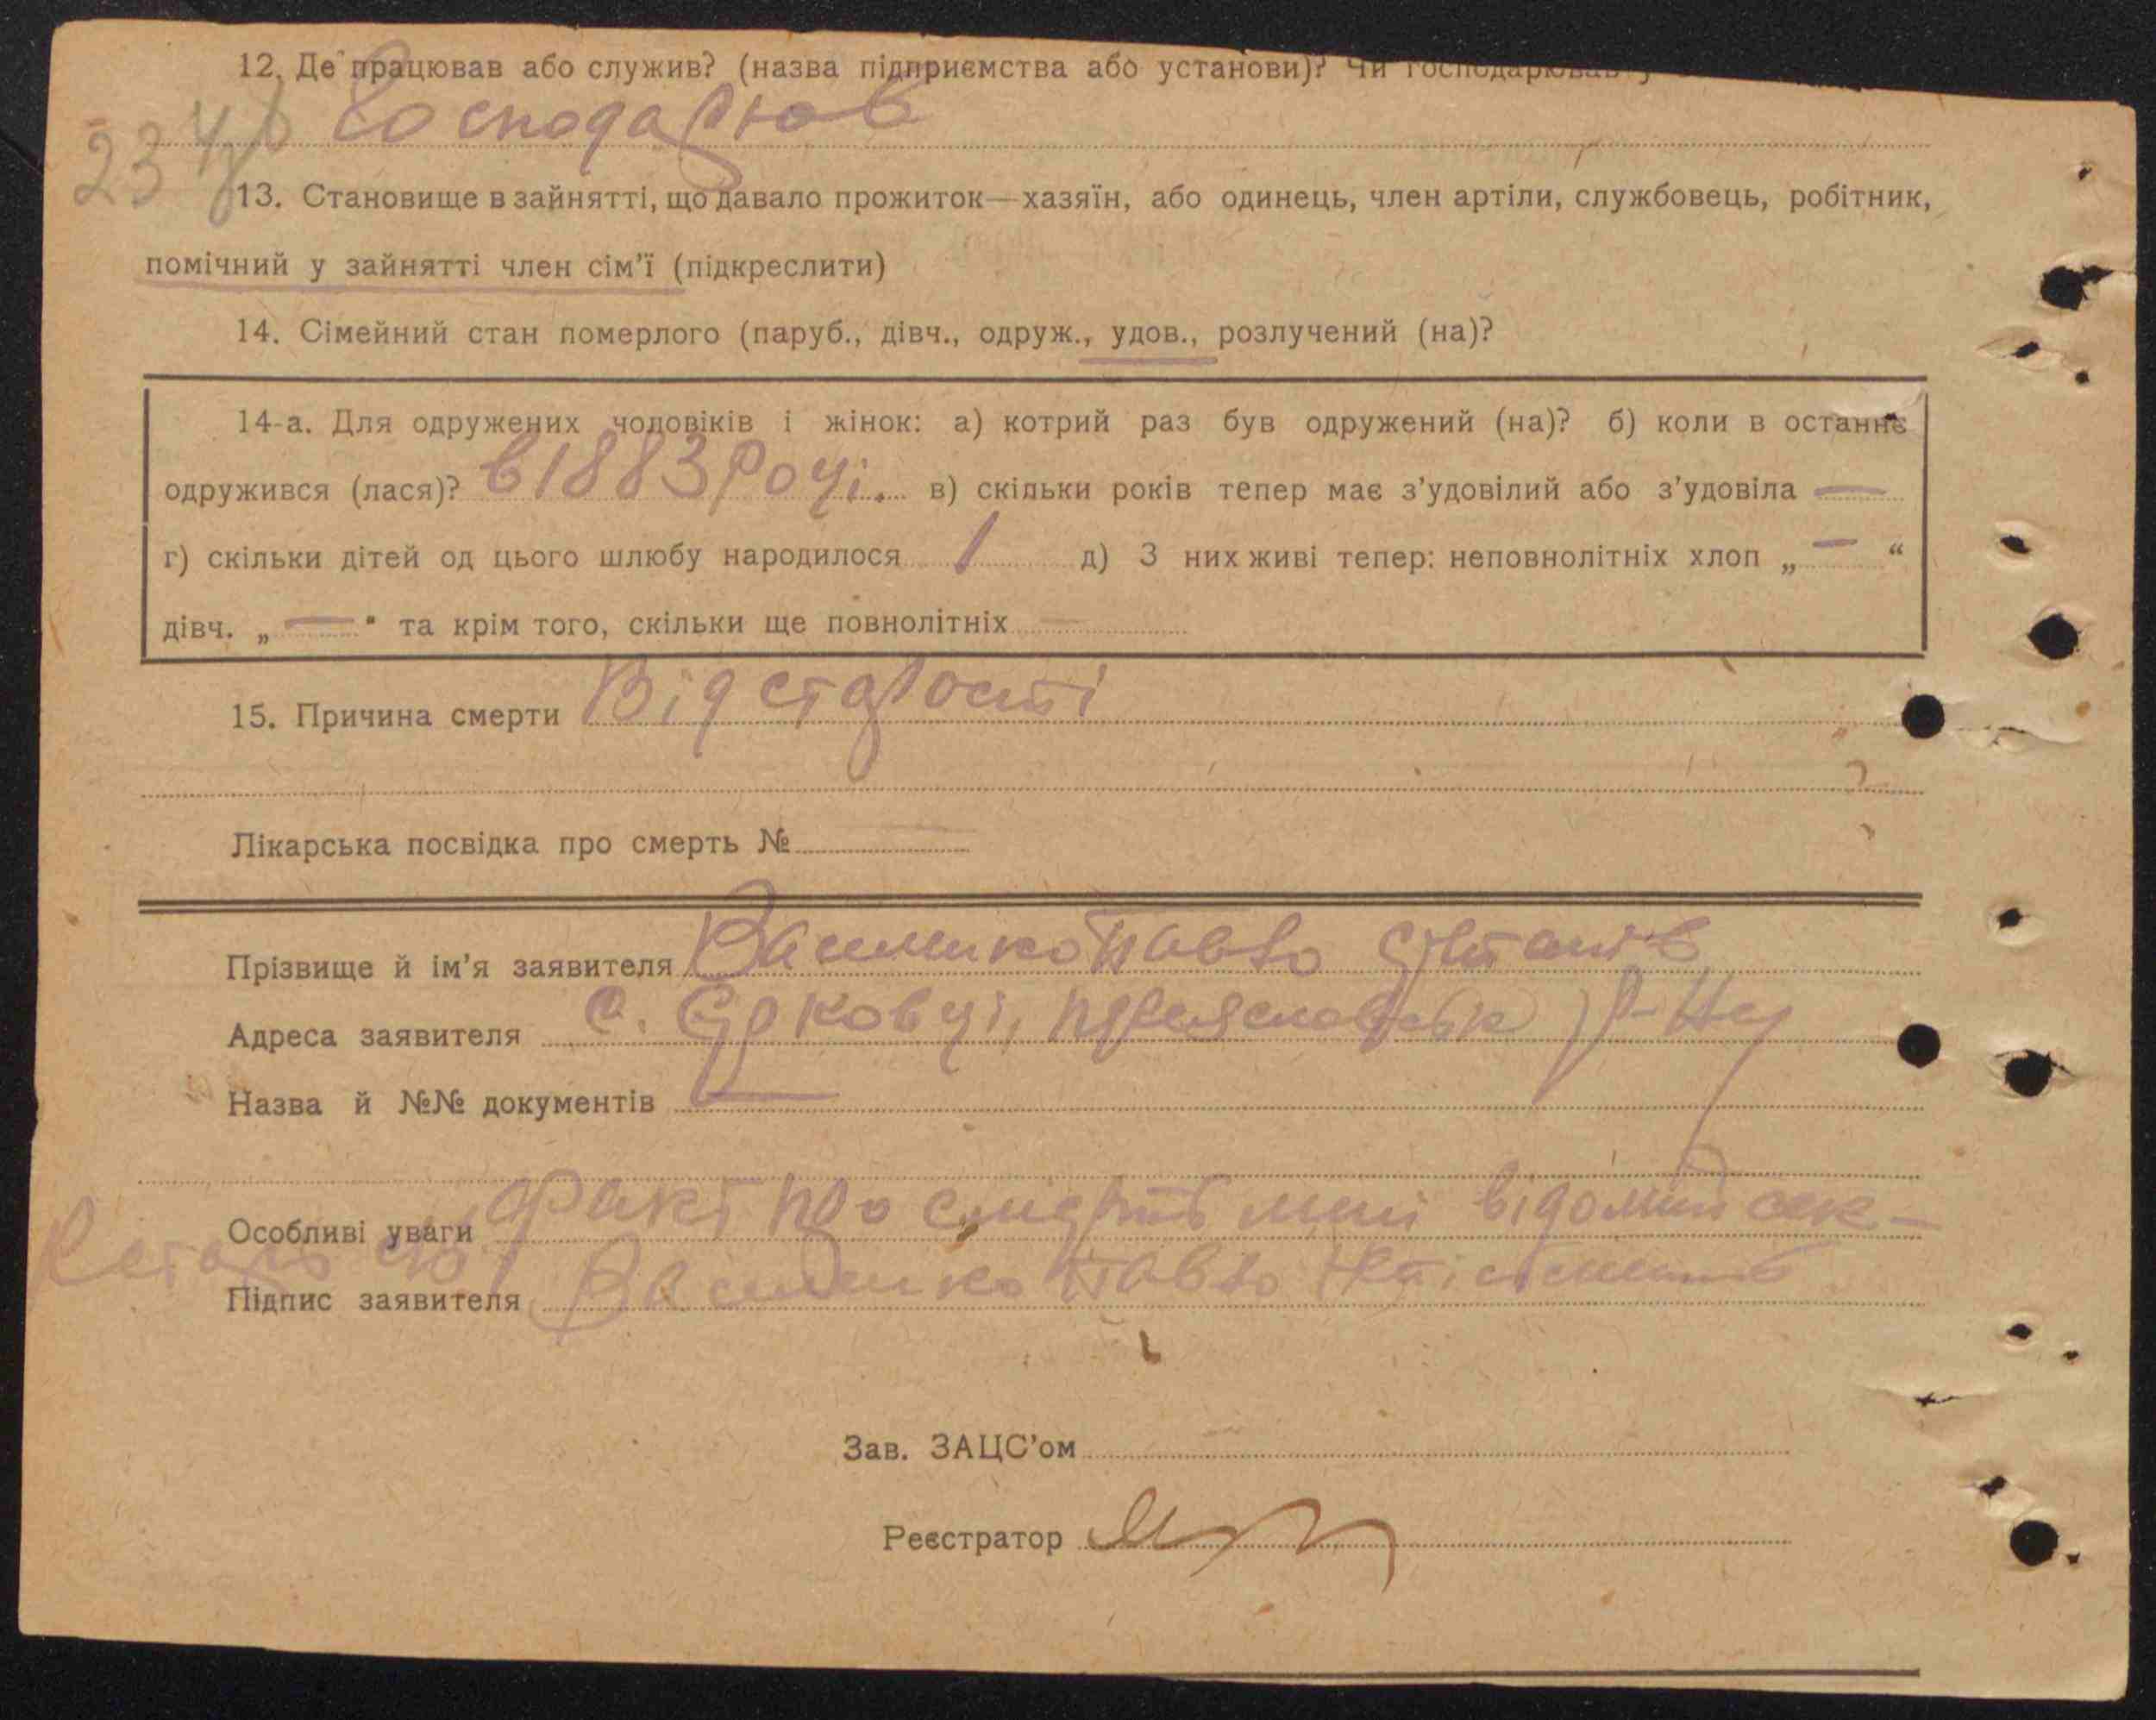 12. Де працював або служив? (назва підприємства або установи)? Чи господарював у
23 Господарював
13. Становище в зайнятті, що давало прожиток—хазяїн, або одинець, член артіли, службовець, робітник,
помічний у зайнятті член сім’ї (підкреслити)
14. Сімейний стан померлого (паруб., дівч., одруж., удов., розлучений (на)?
14-а. Для одружених чоловіків і жінок: а) котрий раз був одружений (на)? б) коли в останнє
одружився (лася)? в 1883 році. в) скільки років тепер має з’удовілий або з’удовіла —
г) скільки дітей од цього шлюбу народилося 1 д) З них живі тепер: неповнолітніх хлоп „ — “
дівч. „ — “ та крім того, скільки ще повнолітніх —
15. Причина смерти Від старості
Лікарська посвідка про смерть №
Прізвище й ім’я заявителя Павло
Адреса заявителя с. Єрковці, Переяславськ р-ну
Назва й №№ документів —
Особливі уваги Факт про смерть мині відомий сек-
ретарь
Підпис заявителя Павло
Зав. ЗАЦС’ом
Реєстратор